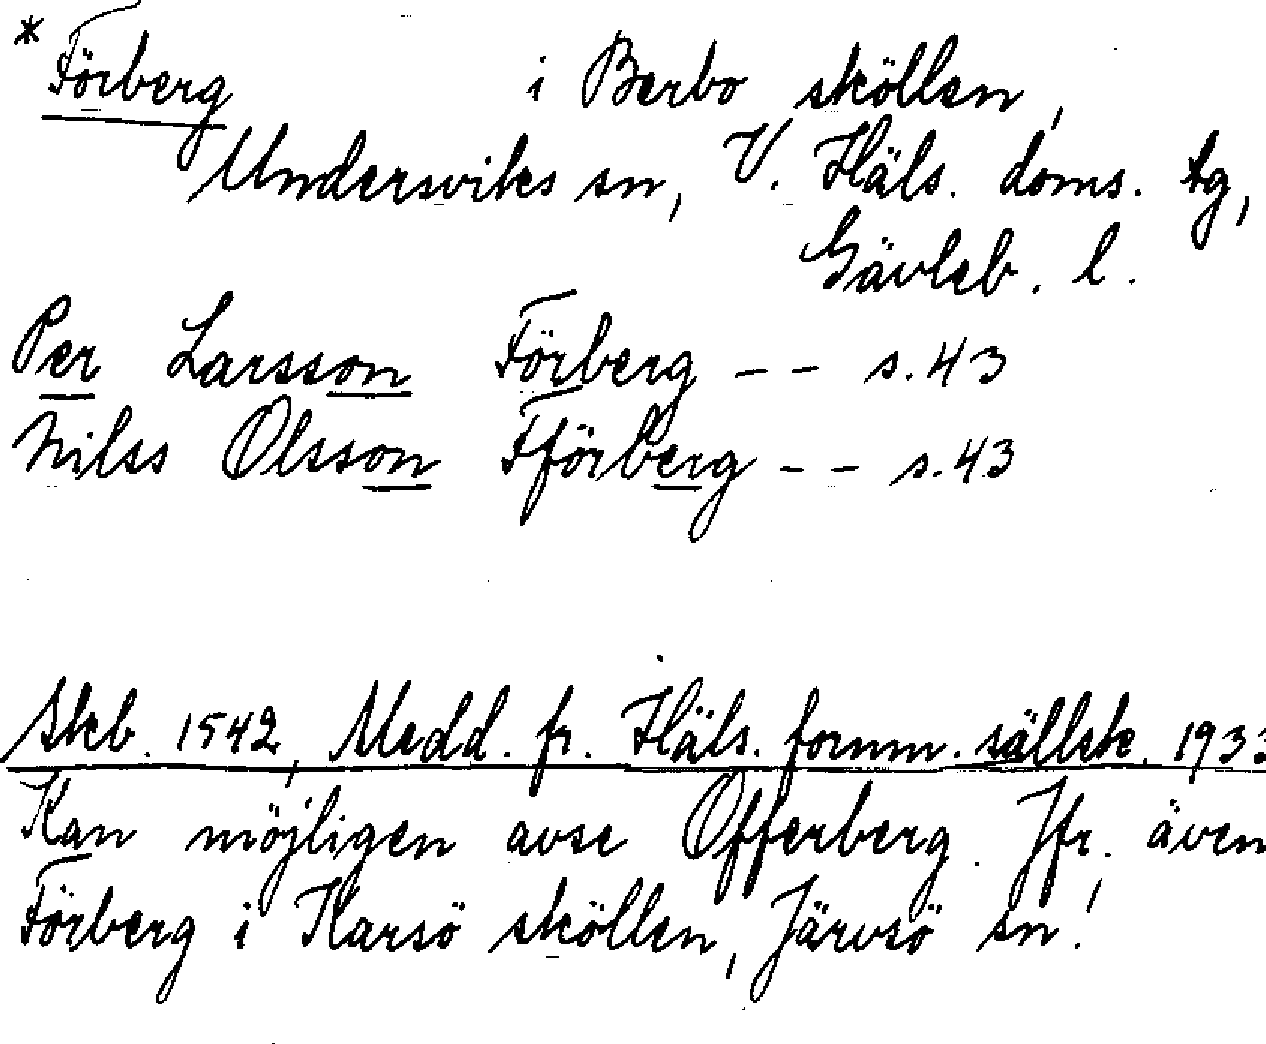 * Förberg i Berbo sköllen,
Undersviks sn, V. Häls. doms. tg,
Gävleb. l.
Per Larsson Förberg -- s. 43
Nilss Olsson Fförberg -- s. 43
Skb. 1542, Medd. fr. Häls. fornm. sällsk. 1933
Kan möjligen avse Offerberg. Jfr. även
Förberg i Karsö sköllen, Järvsö sn!